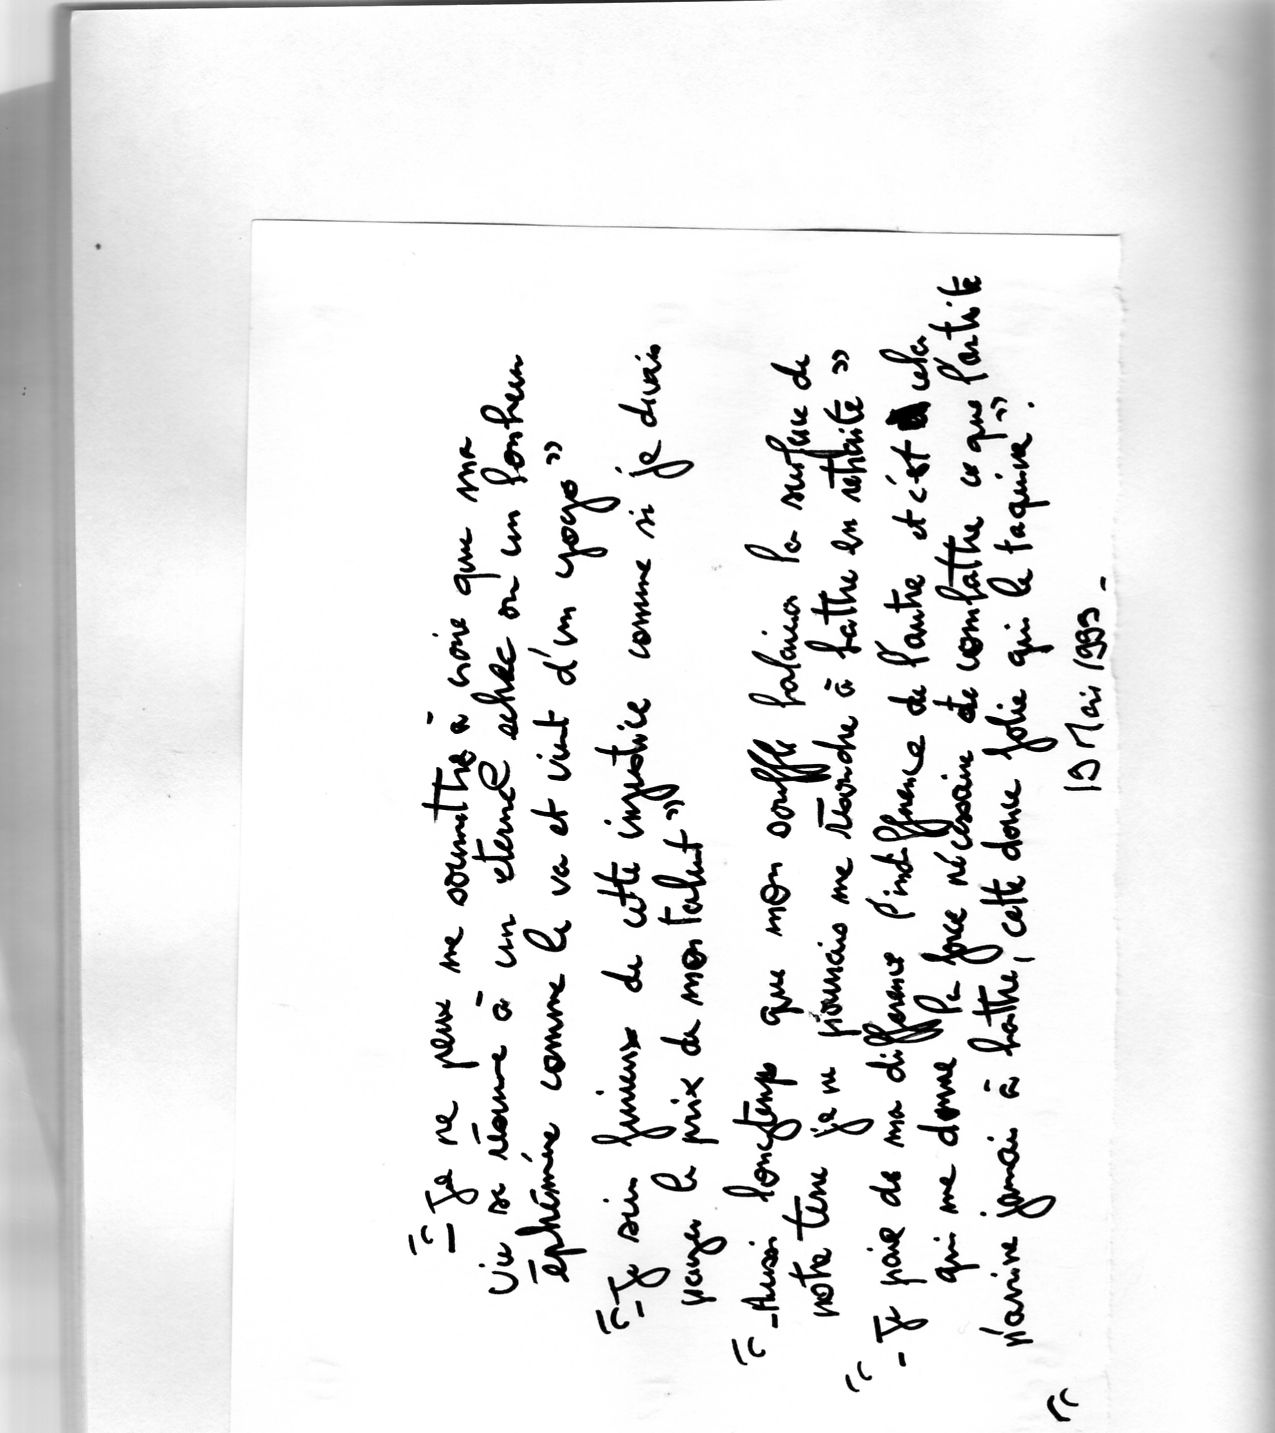 "- Je ne peux me soumettre à croire que ma
vie se résume à un eternel echec où un bonheur
éphémère comme le va et vient d'un yoyo"
"- Je suis furieux de cette injustice comme si je devais
payer le prix de mon talent"
"- Aussi longtemps que mon souffle balaiera la surface de
notre terre je ne pourrais me résoudre à battre en retraite"
"- Je paie de ma difference l'indifference de l'autre et c'est cela
qui me donne la force nécessaire de combattre ce que l'artiste
n'arrive jamais à battre, cette douce folie qui le taquine".
"
19 Mai 1993 -